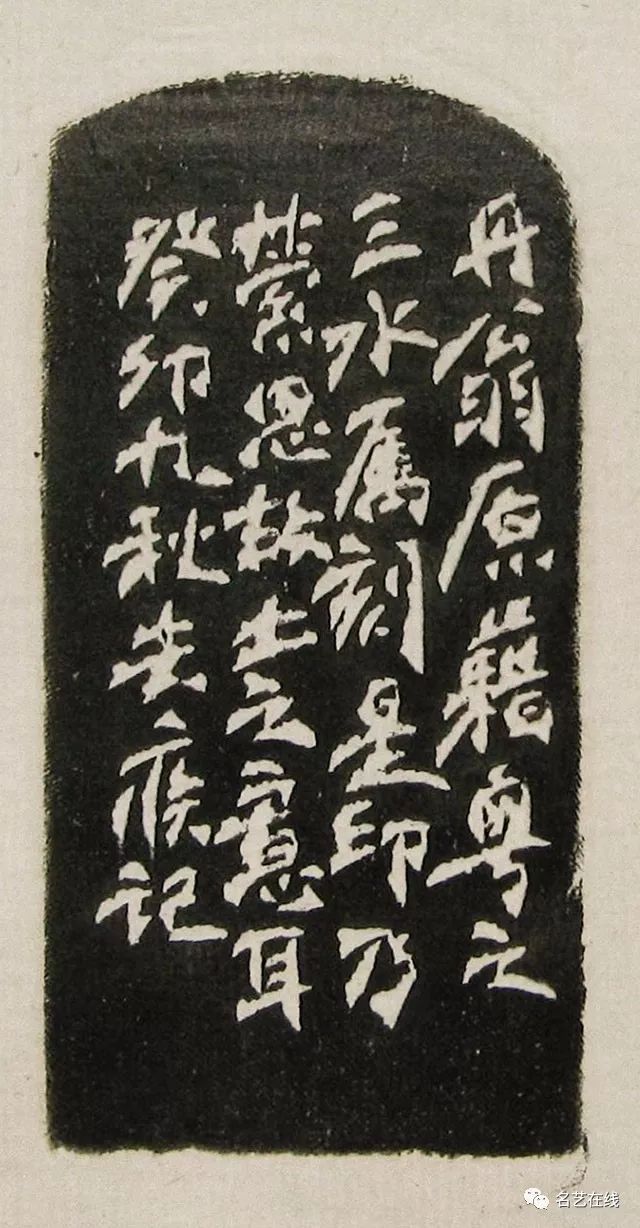 丹翁原籍粤之
三水属刻是印乃
萦思故土之意耳
癸卯九秋去疾记
名艺在线